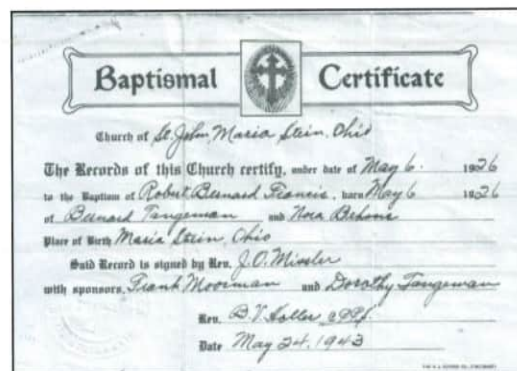 Baptismal Certificate
Church of St. John, Maria Stein, Ohio
The Records of this Church certify, under date of May 6. 1926
to the Baptism of Robert Bernard Francis, born May 6 1926
of Bernard Tangeman and Nora Behms
Place of Birth Maria Stein, Ohio
Said Record is signed by Rev. J.O. Missler
with sponsors, Frank Moorman and Dorothy Tangeman
Rev. B.V. Koller CPPS.
Date May 24, 1943